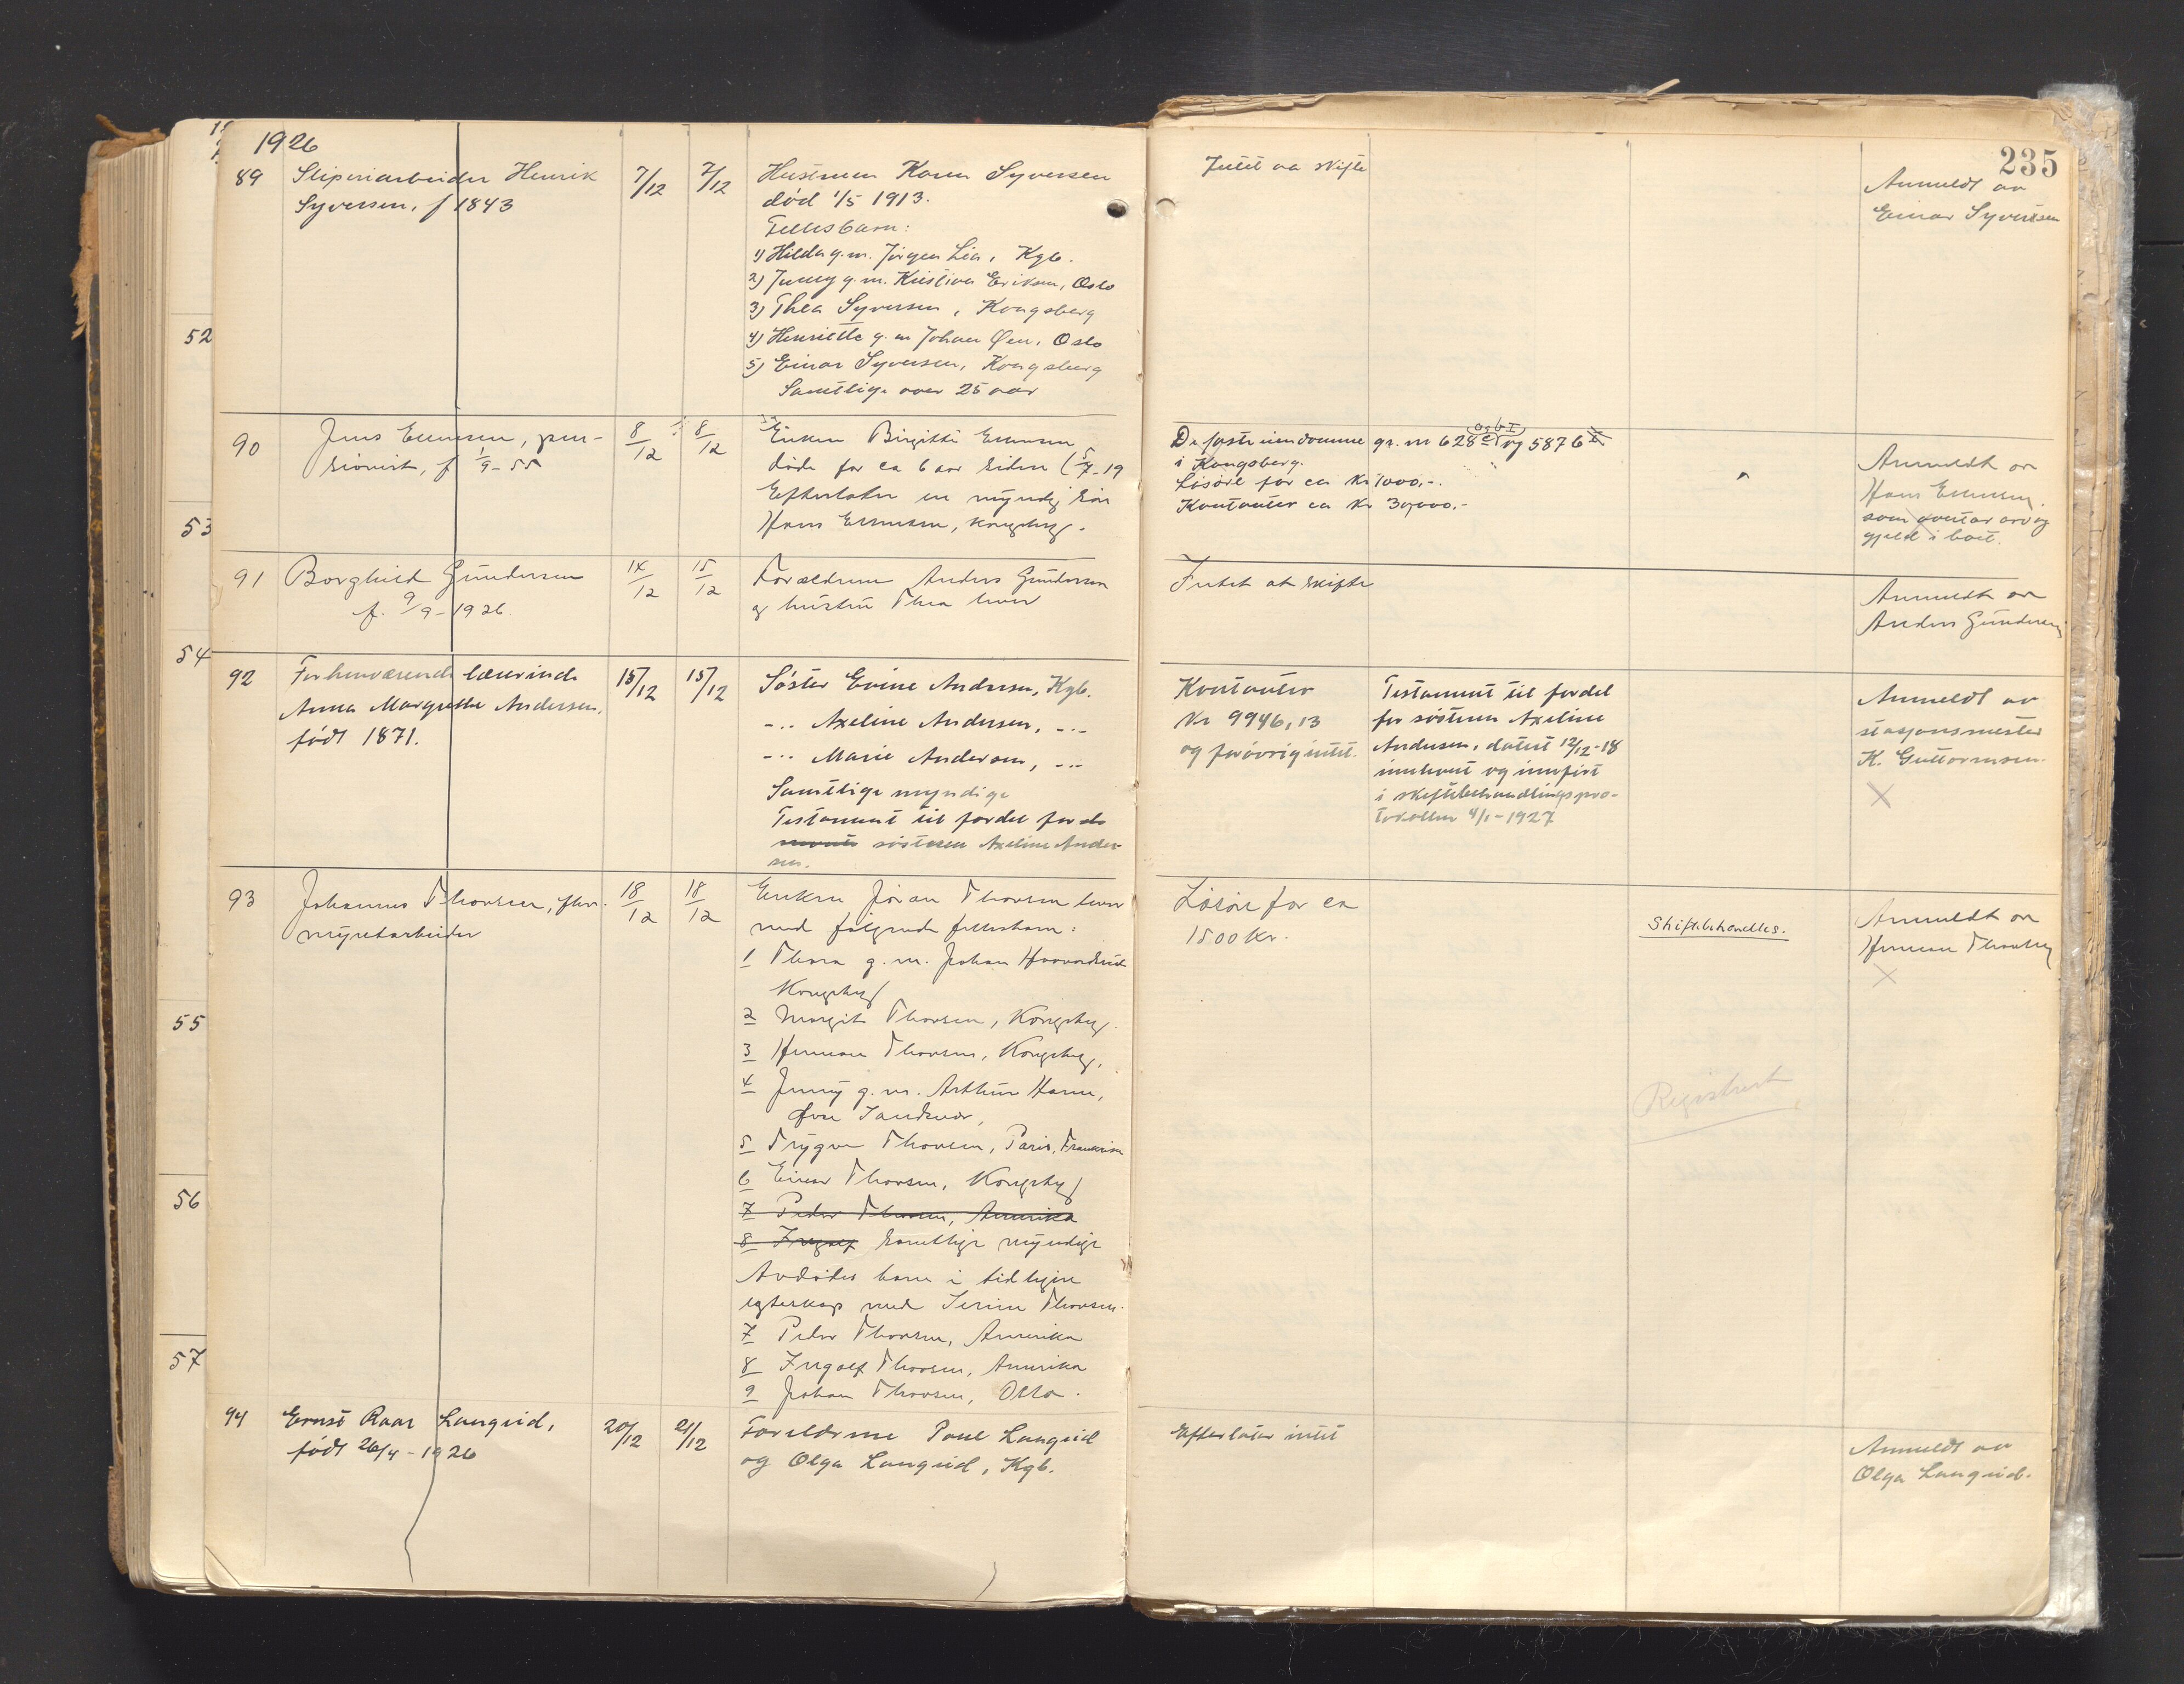 1926
235
89
Sliperiarbeider Henrik
Syversen, f 1843
7/12
7/12
Hustruen Karen Syversen
död 1/5 1913.
Fellesbarn:
1) Hilda g.m. Jörgen Lia, Kgb.
2) Jenny g.m. Kristian Eriksen, Oslo
3) Thea Syversen, Kongsberg
4) Henriette g.m Johan Øen, Oslo
5) Einar Syversen, Kongsberg
Samtlige over 25 aar
Intet aa skifte
Anmeldt av
Einar Syversen
90
Jens Evensen, pen-
sionist, f 1/9-55
8/12
8/12
Enken Birgitte Evensen
döde for ca 6 aar siden (5/7-19
Efterlater en myndig sön
Hans Evensen, Kongsberg.
De faste eiendomme gr. nr 628 og 5876
i Kongsberg.
Lösöre for ca Kr 1000.-.
Kontanter ca Kr 30,000.-
Anmeldt av
Hans Evensen
som overtar arv og
gjeld i boet.
91
Borghild Gundersen
f. 9/9-1926.
14/12
15/12
Forældrene Anders Gundersen
og hustru Thea lever
Intet at skifte
Anmeldt av
Anders Gundersen
92
Forhenværende lærerinde
Anna Margrethe Andersen,
födt 1871.
15/12
15/12
Söster Evine Andersen, Kgb.
-"- Axeline Andersen, -"-
-"- Marie Andersen, -"-
Samtlige myndige
Testament til fordel for
söstersen Axeline Ander-
sen.
Kontanter
Kr 9946,13
og forövrig intet.
Testament til fordel
for sösteren Axeline
Andersen, datert 12/12-18
innlevert og innfört
i skiftebehandlingspro-
tokollen 4/1-1927
Anmeldt av
stasjonsmester
K. Guttormsen.
93
Johannes Thorsen, fhv.
myntarbeider
18/12
18/12
Enken Jöran Thorsen lever
med fölgende fellesbarn:
1 Thora g.m. Johan
Kongsberg
2 Margit Thorsen, Kongsberg.
3 Herman Thorsen, Kongsberg,
4 Jenny g.m. Arthur Hamn,
Øvre Sandsvær,
5 Trygve Thorsen, Paris, Frankrike
6 Einar Thorsen, Kongsberg
7 Peder Thorsen, Amerika
8 Ingolf samtlige myndige
Avdödes barn i tidligere
egteskap med Serine Thorsen.
7 Peder Thorsen, Amerika
8 Ingolf Thorsen, Amerika
9 Johan Thorsen, Otta.
Lösöre for ca
1500 kr.
Skiftebehandles.
Registrert
Anmeldt av
Herman Thorsen
94
Ernst Roar Langrid,
födt 26/4-1926
20/12
21/12
Foreldrene Paul Langrid
og Olga Langrid, Kgb.
Efterlater intet
Anmeldt av
Olga Langrid.
52
53
54
55
56
57